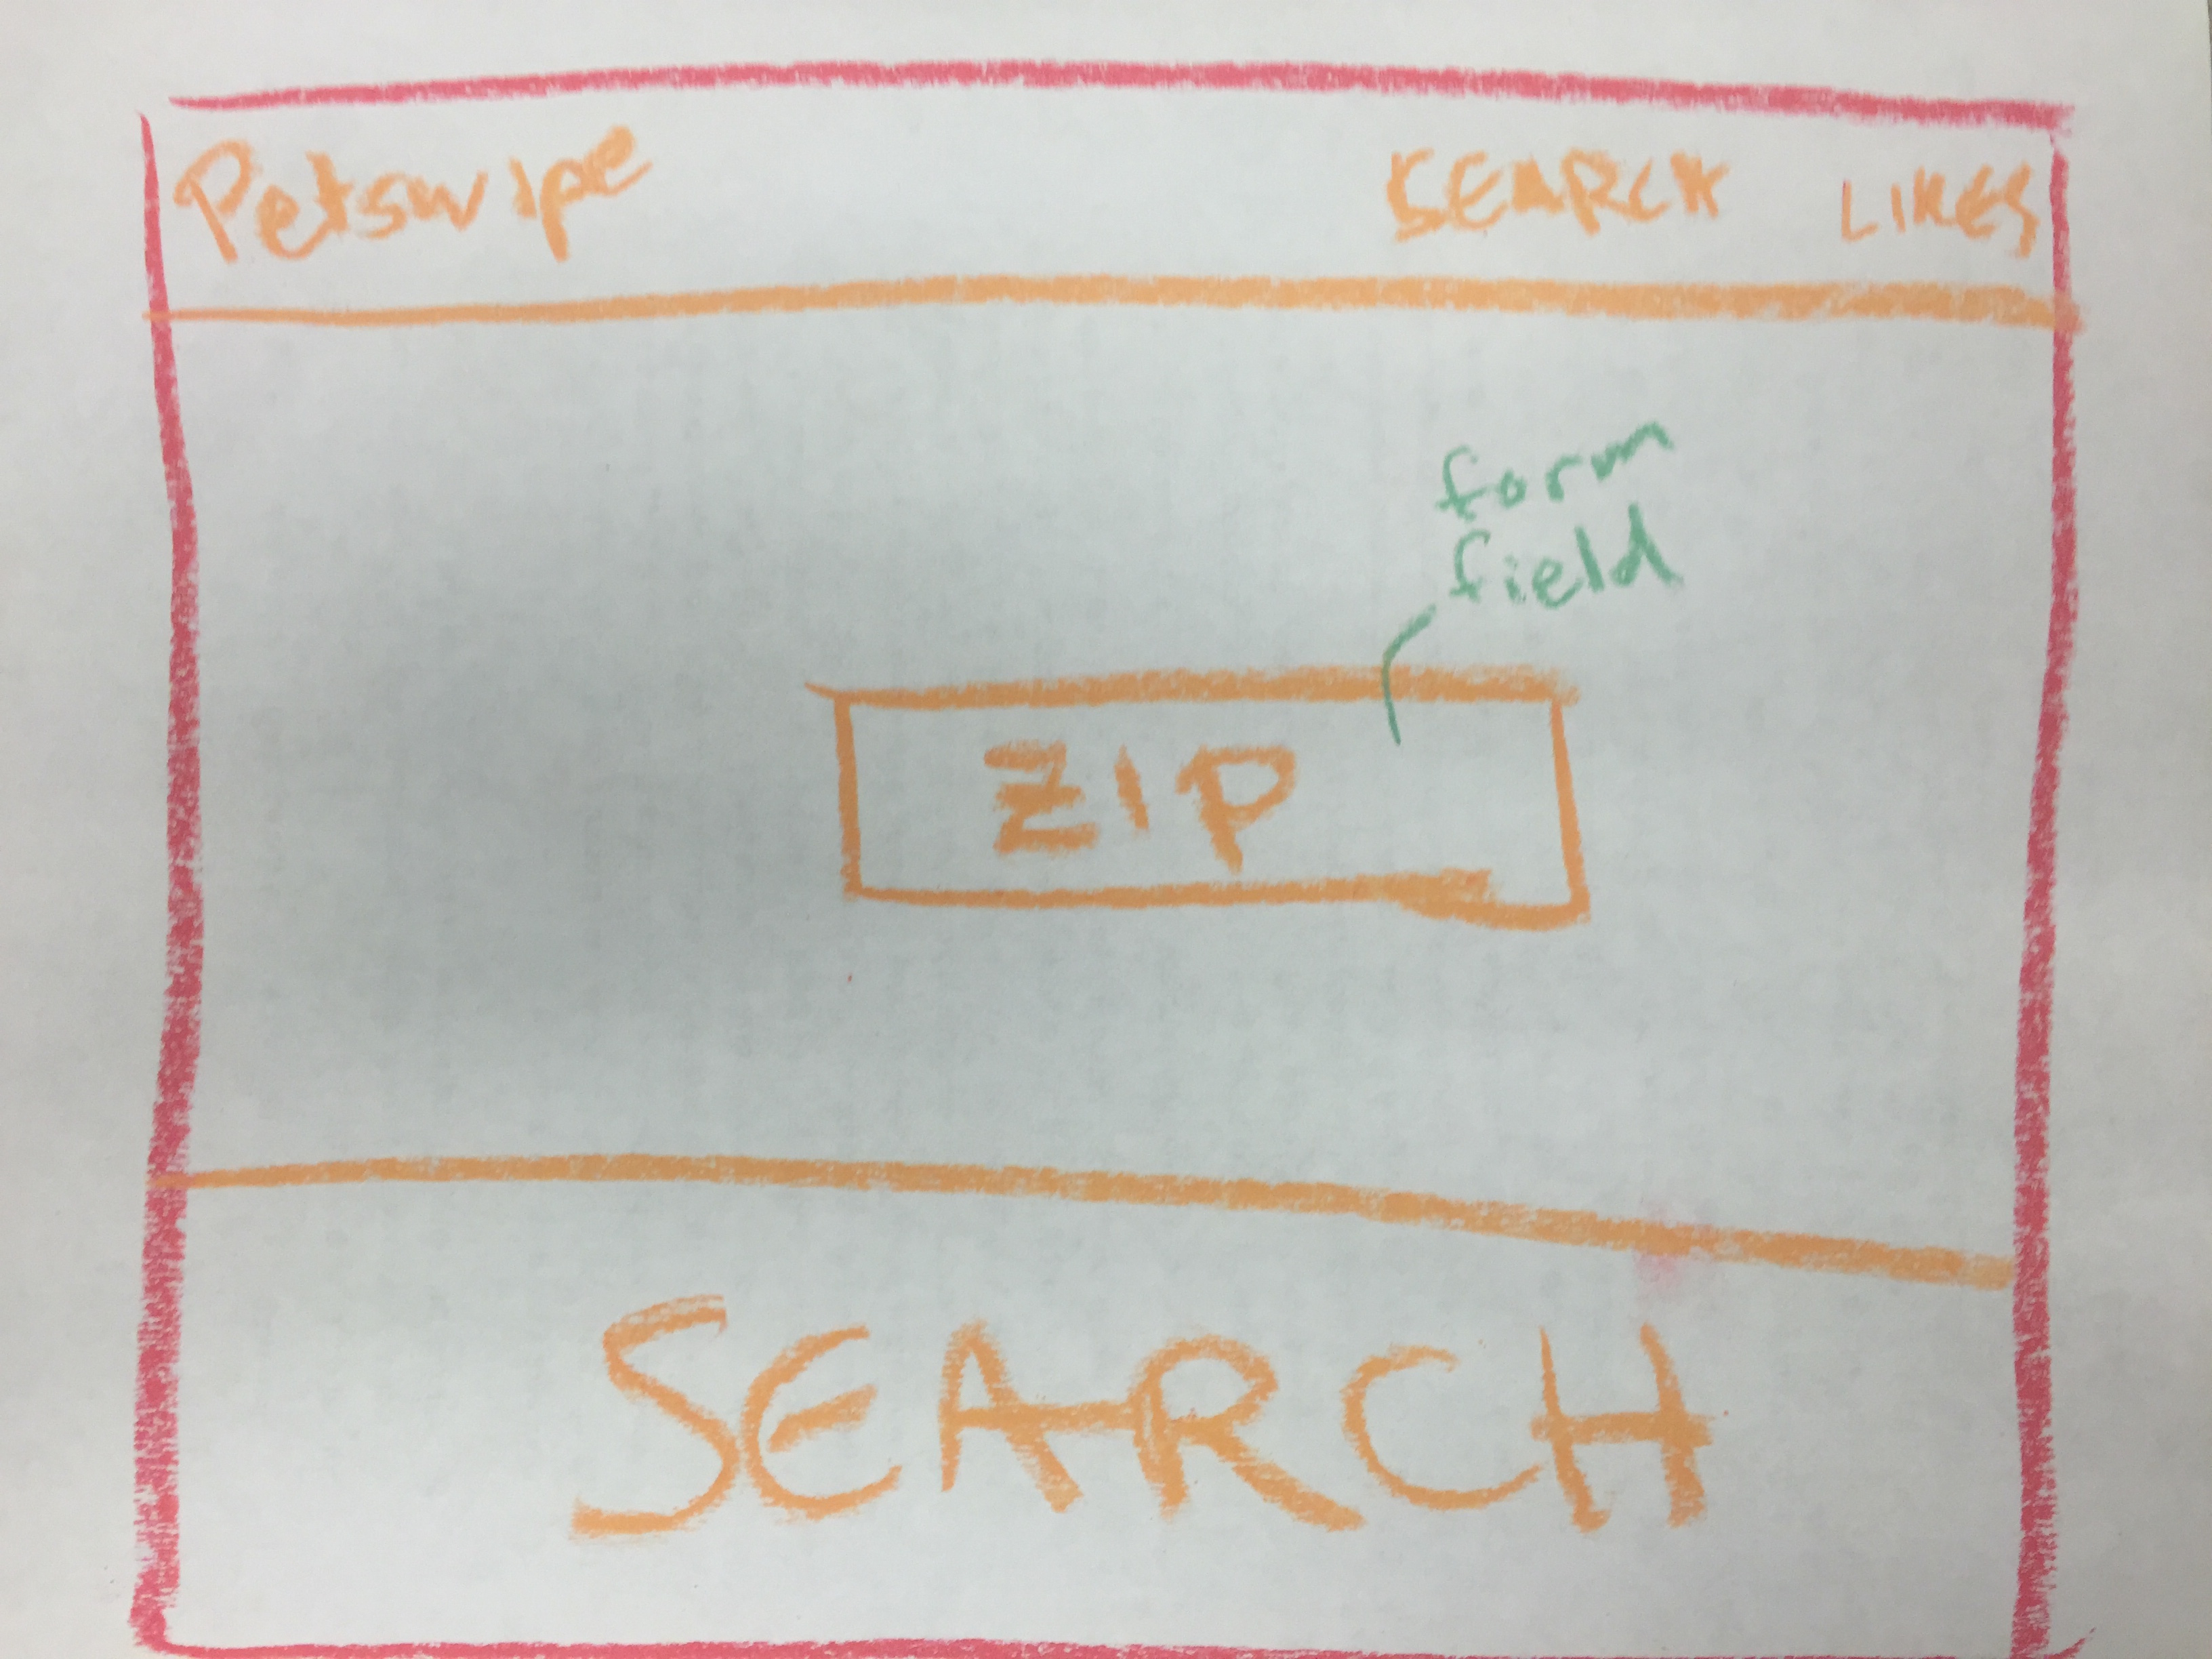 Petswipe SEARCH LIKES
form
field
ZIP
SEARCH